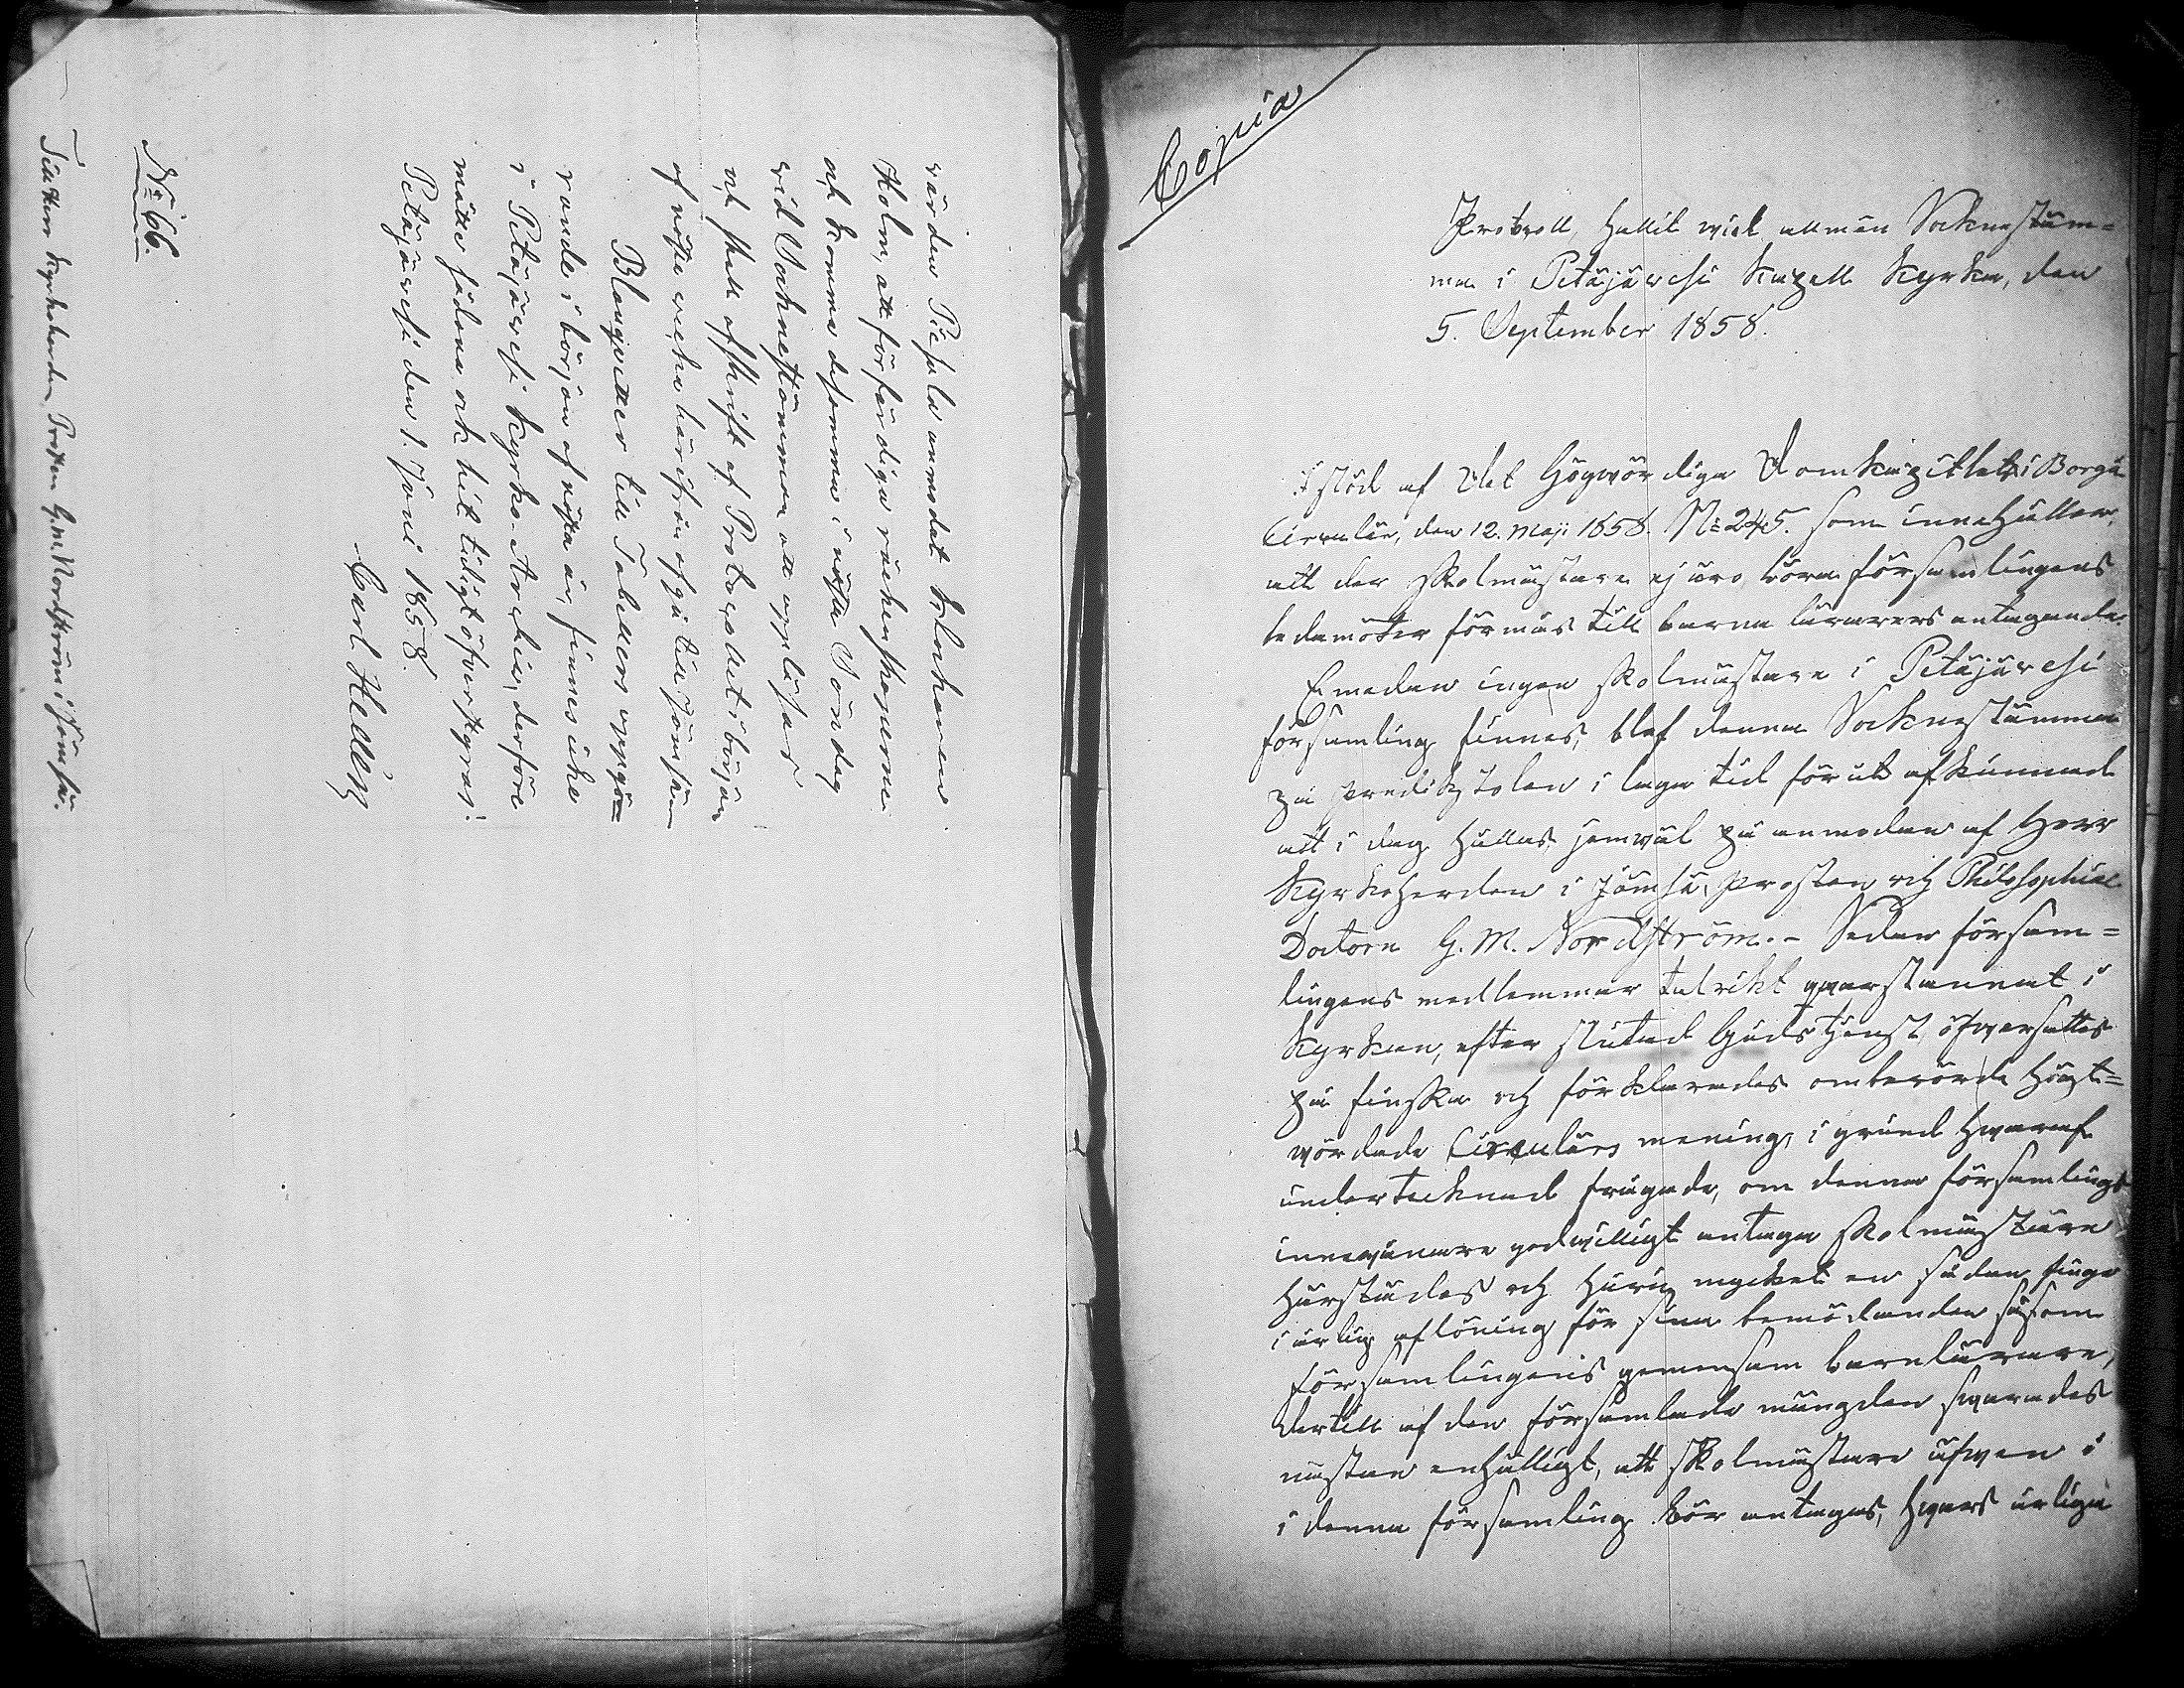 värden Piesala anmodat klockaren
Holm, att förfärdiga räkenskaperne
och komma desamma i nästa Söndag
vid Socknestämman att uppläsas
och skall afskrift af Protocollet i början
af nästa vecka härifrån afgå till Jämsä.
Blanquetter till Tabellers uppgö=
rande i början af nästa år, finnes icke
i Petäjävesi Kyrko-Archiv, derföre
måtte sådana ock hit tidigt öfverstyras!
Petäjävesi den 1. Juni 1858.
Carl Helling
No 66.
Till Herr Kyrkoherden Prosten G. M. Nordström i Jämsä.
Copia
Protocoll, hållit wid allmän Socknestäm=
ma i Petäjäwesi Kapell Kyrka, den
5. September 1858.
I stöd af Det Högwördiga Domkapitlets i Borgå
Circulär, den 12. Maji 1858. No 245. som innehåller,
att der skolmästare ej äro, böra församlingens
ledamöter förmås till barna lärarers antagande.
Emedan ingen skolmästare i Petäjäwesi
församling finnes, blef denna Socknestämma
på predikstolen i laga tid förut afkunnad
att i dag hållas, jemwäl på anmodan af Herr
Kyrkoherden i Jämsä, Prosten och Philosophiae
Doctorn G. M. Nordström. - Sedan försam=
lingens medlemmar talrikt qvarstannat i
Kyrkan, efter slutad Gudstjenst, öfwersattes
på finska och förklarades omberörde Högt=
wördade Circulärs mening, i grund hwaraf
undertecknad frågade, om denna församlings
innewånare godwilligt antaga skolmästare
härstädes och huru mycket en sådan finge
i årlig aflöning för sina bemödanden såsom
församlingens gemensam barnlärare,
dertill af den församlade mängden swarades
nästan enhälligt, att skolmästare äfwen i
i denna församling bör antagas, hwars årliga